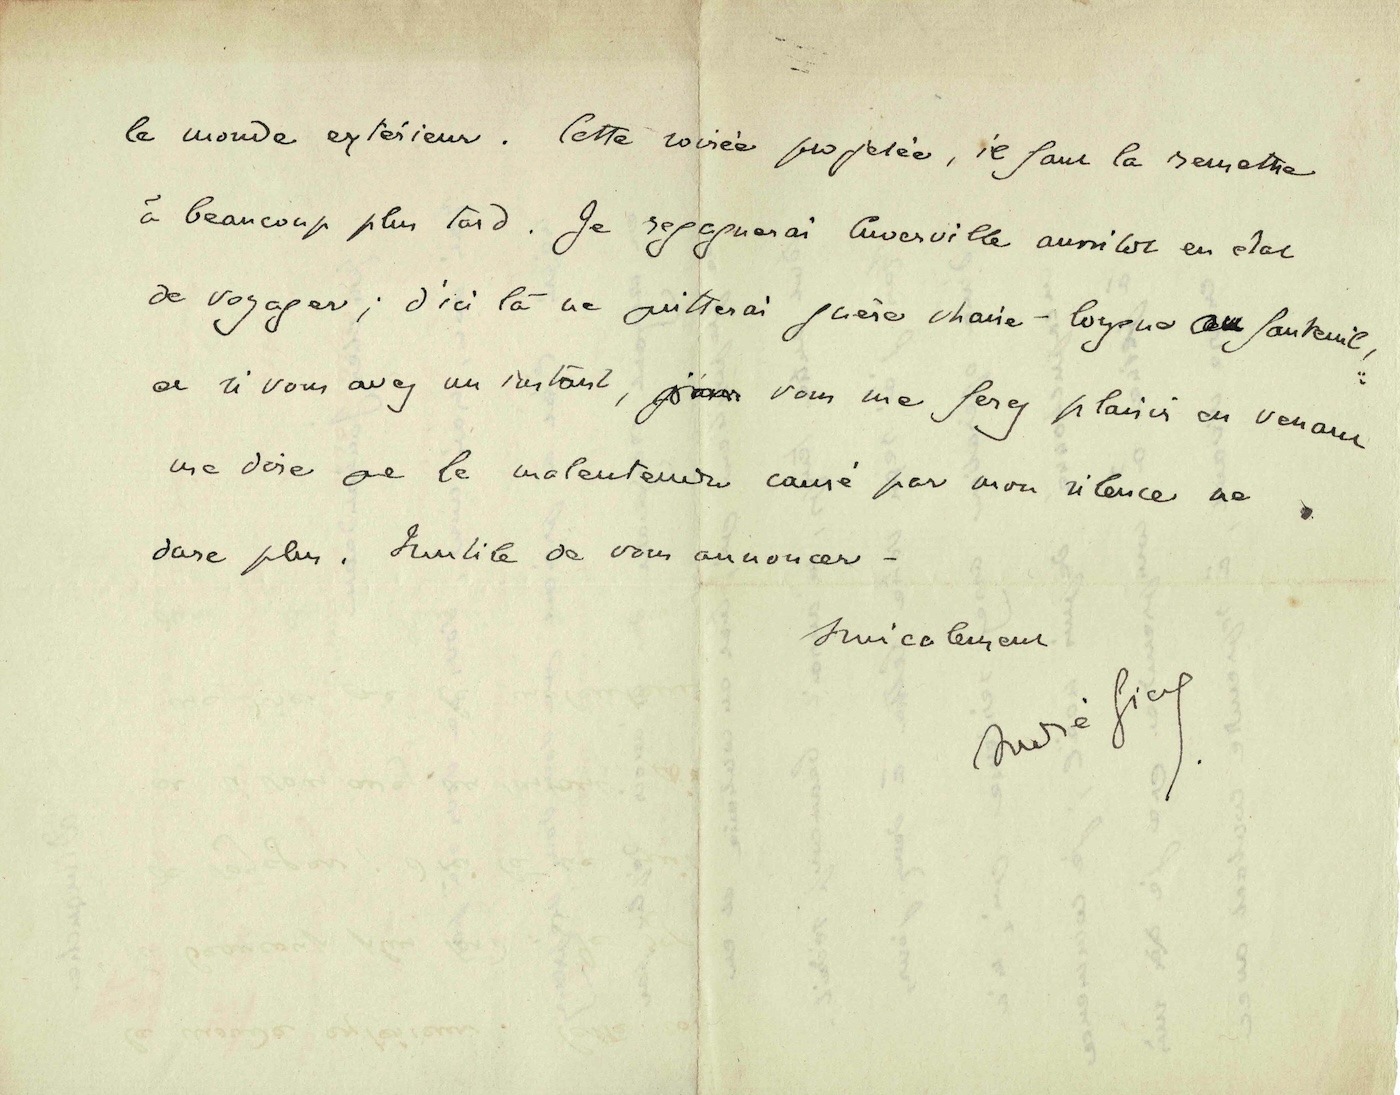 le monde extérieur. Cette soirée projetée, il faut la remettre
à beaucoup plus tard. Je regagnerai Cuverville aussitôt en état
de voyager ; d'ici là ne quitterai guère chaise-longue ou fauteuil,
et si vous avez un instant, vous me ferez plaisir en venant
me dire que le malentendu causé par mon silence ne
dure plus. Inutile de vous annoncer -
Amicalement
André Gide.